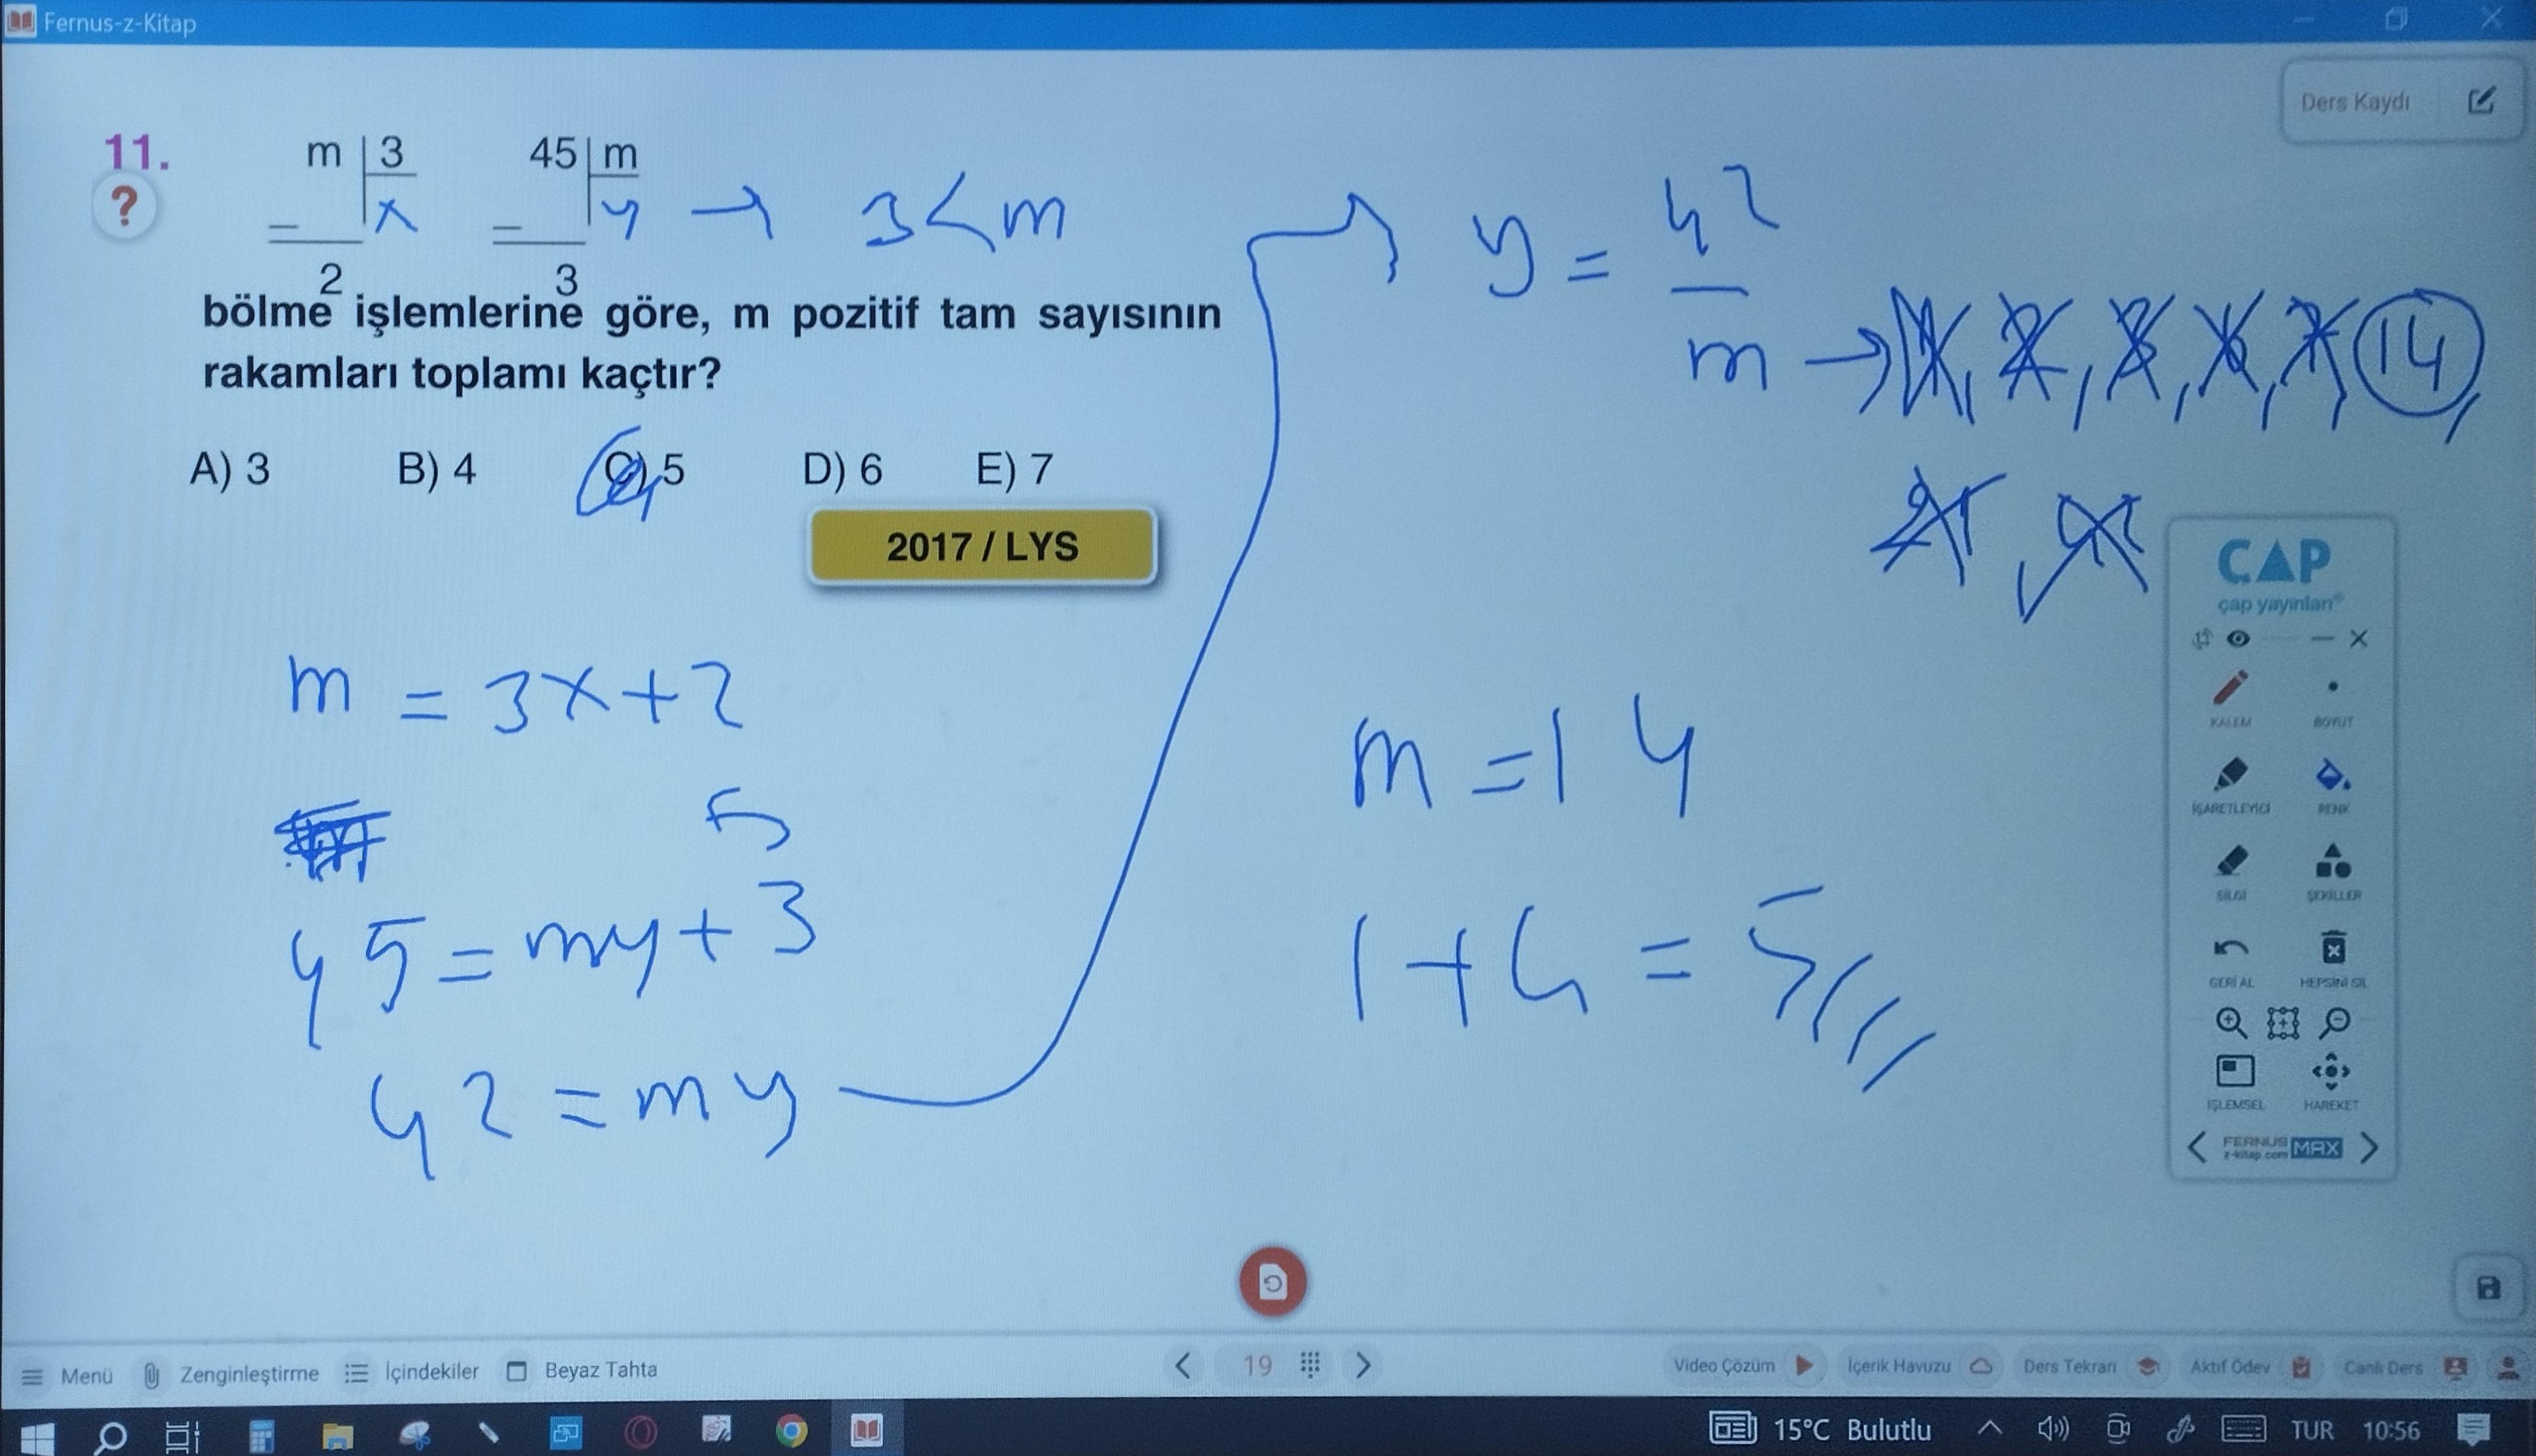 Fernus-z-Kitap
Ders Kaydı
11.
?
m 3
x
2
45 m
y → 3<m
3
bölme işlemlerine göre, m pozitif tam sayısının
rakamları toplamı kaçtır?
A) 3 B) 4 C) 5 D) 6 E) 7
2017 / LYS
m = 3x+2
5
45=my+3
42=my
y = 42
m → 14
m=14
1+4=5
ÇAP
çap yayınları®
KALEM BOYUT
İŞARETLEYİCİ RENK
SİLGİ ŞEKİLLER
GERİ AL HEPSİNİ SİL
İŞLEMSEL HAREKET
FERNUS
z-kitap.com MAX
Menü Zenginleştirme İçindekiler Beyaz Tahta 19 Video Çözüm İçerik Havuzu Ders Tekrarı Aktif Ödev Canlı Ders
15°C Bulutlu TUR 10:56